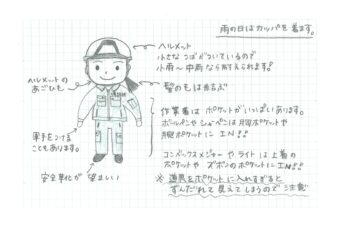 雨の日はカッパを着ます。
ヘルメット
小さなつばがついているので
小雨〜中雨なら耐えられます！
ヘルメットの
あごひも
髪のもは結ぶ
作業着はポケットがいっぱいあります。
ボールペンやシャーペンは胸ポケットや
腕ポケットにIN!!
軍手をつける
こともあります。
コンベックスメジャーやライトは上着の
ポケットやズボンのポケットにIN!!
安全靴が望ましい
※道具をポケットに入れすぎると
ずんだれて見えてしまうので注意